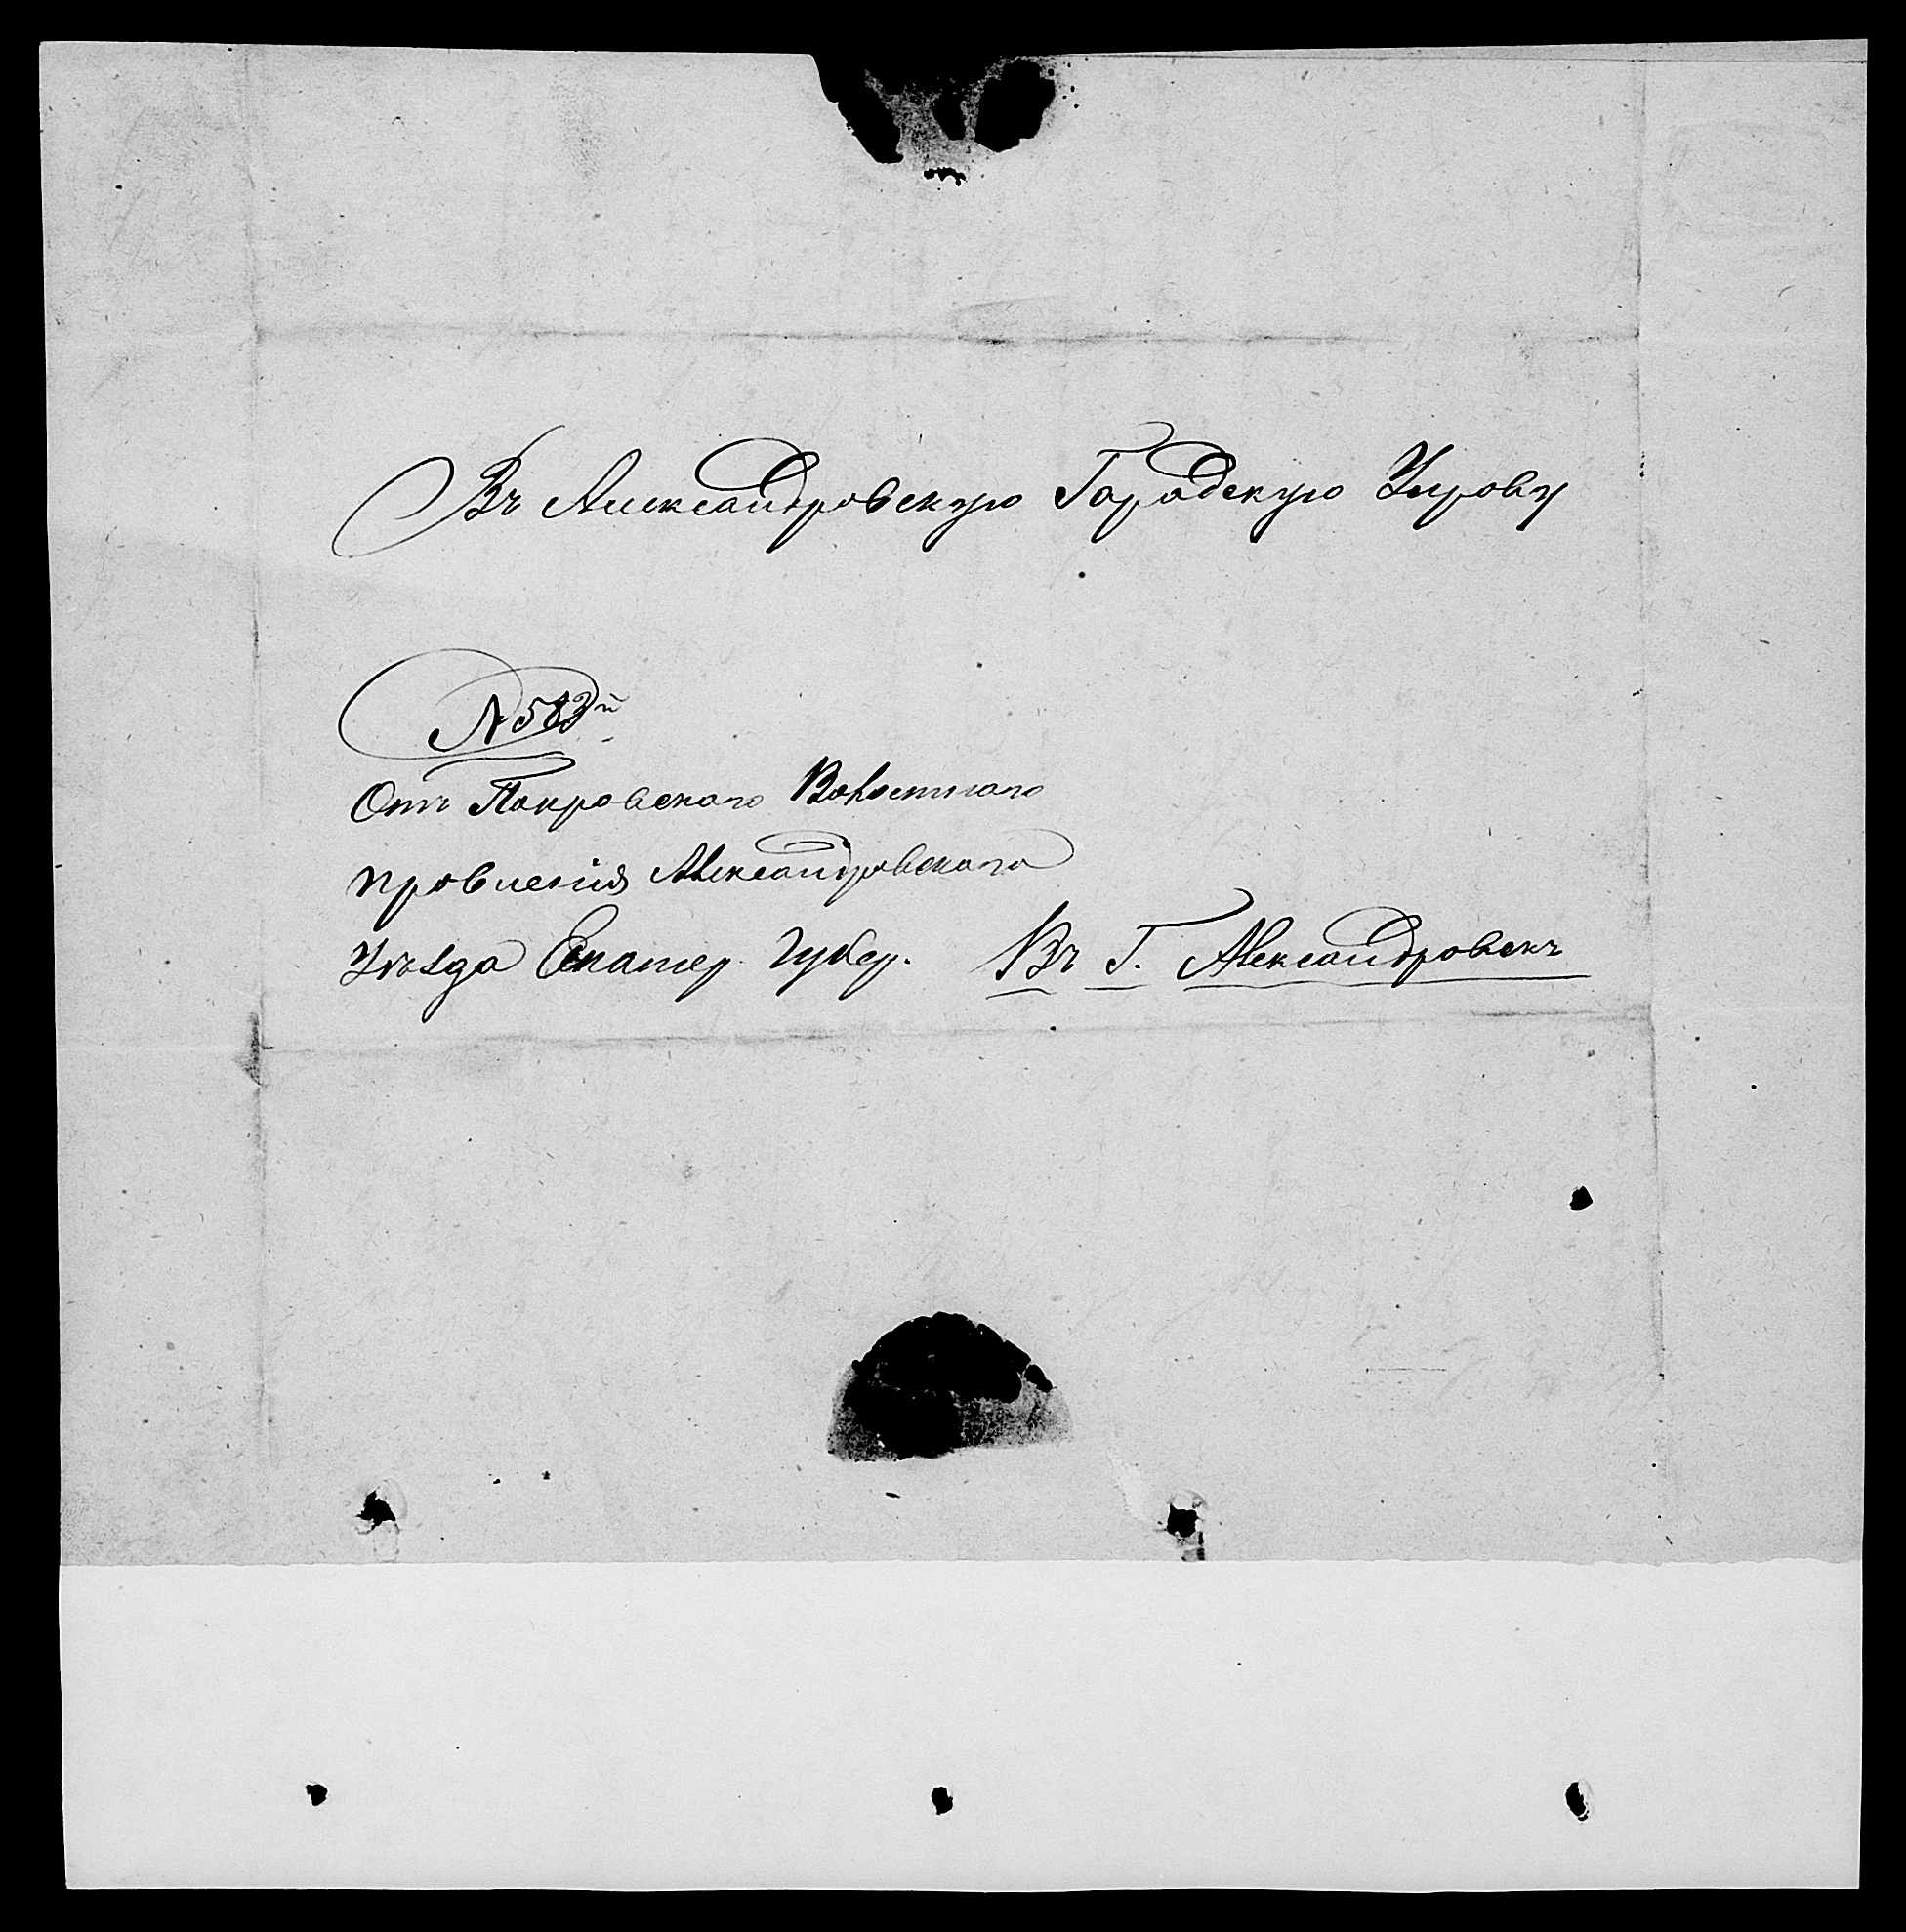 Въ Александровскую Городскую Управу
№ 583й
Отъ Покровского Волостного
провленія Александровскаго
Уѣзда Екатер. Губер. Въ Г. Александровскъ